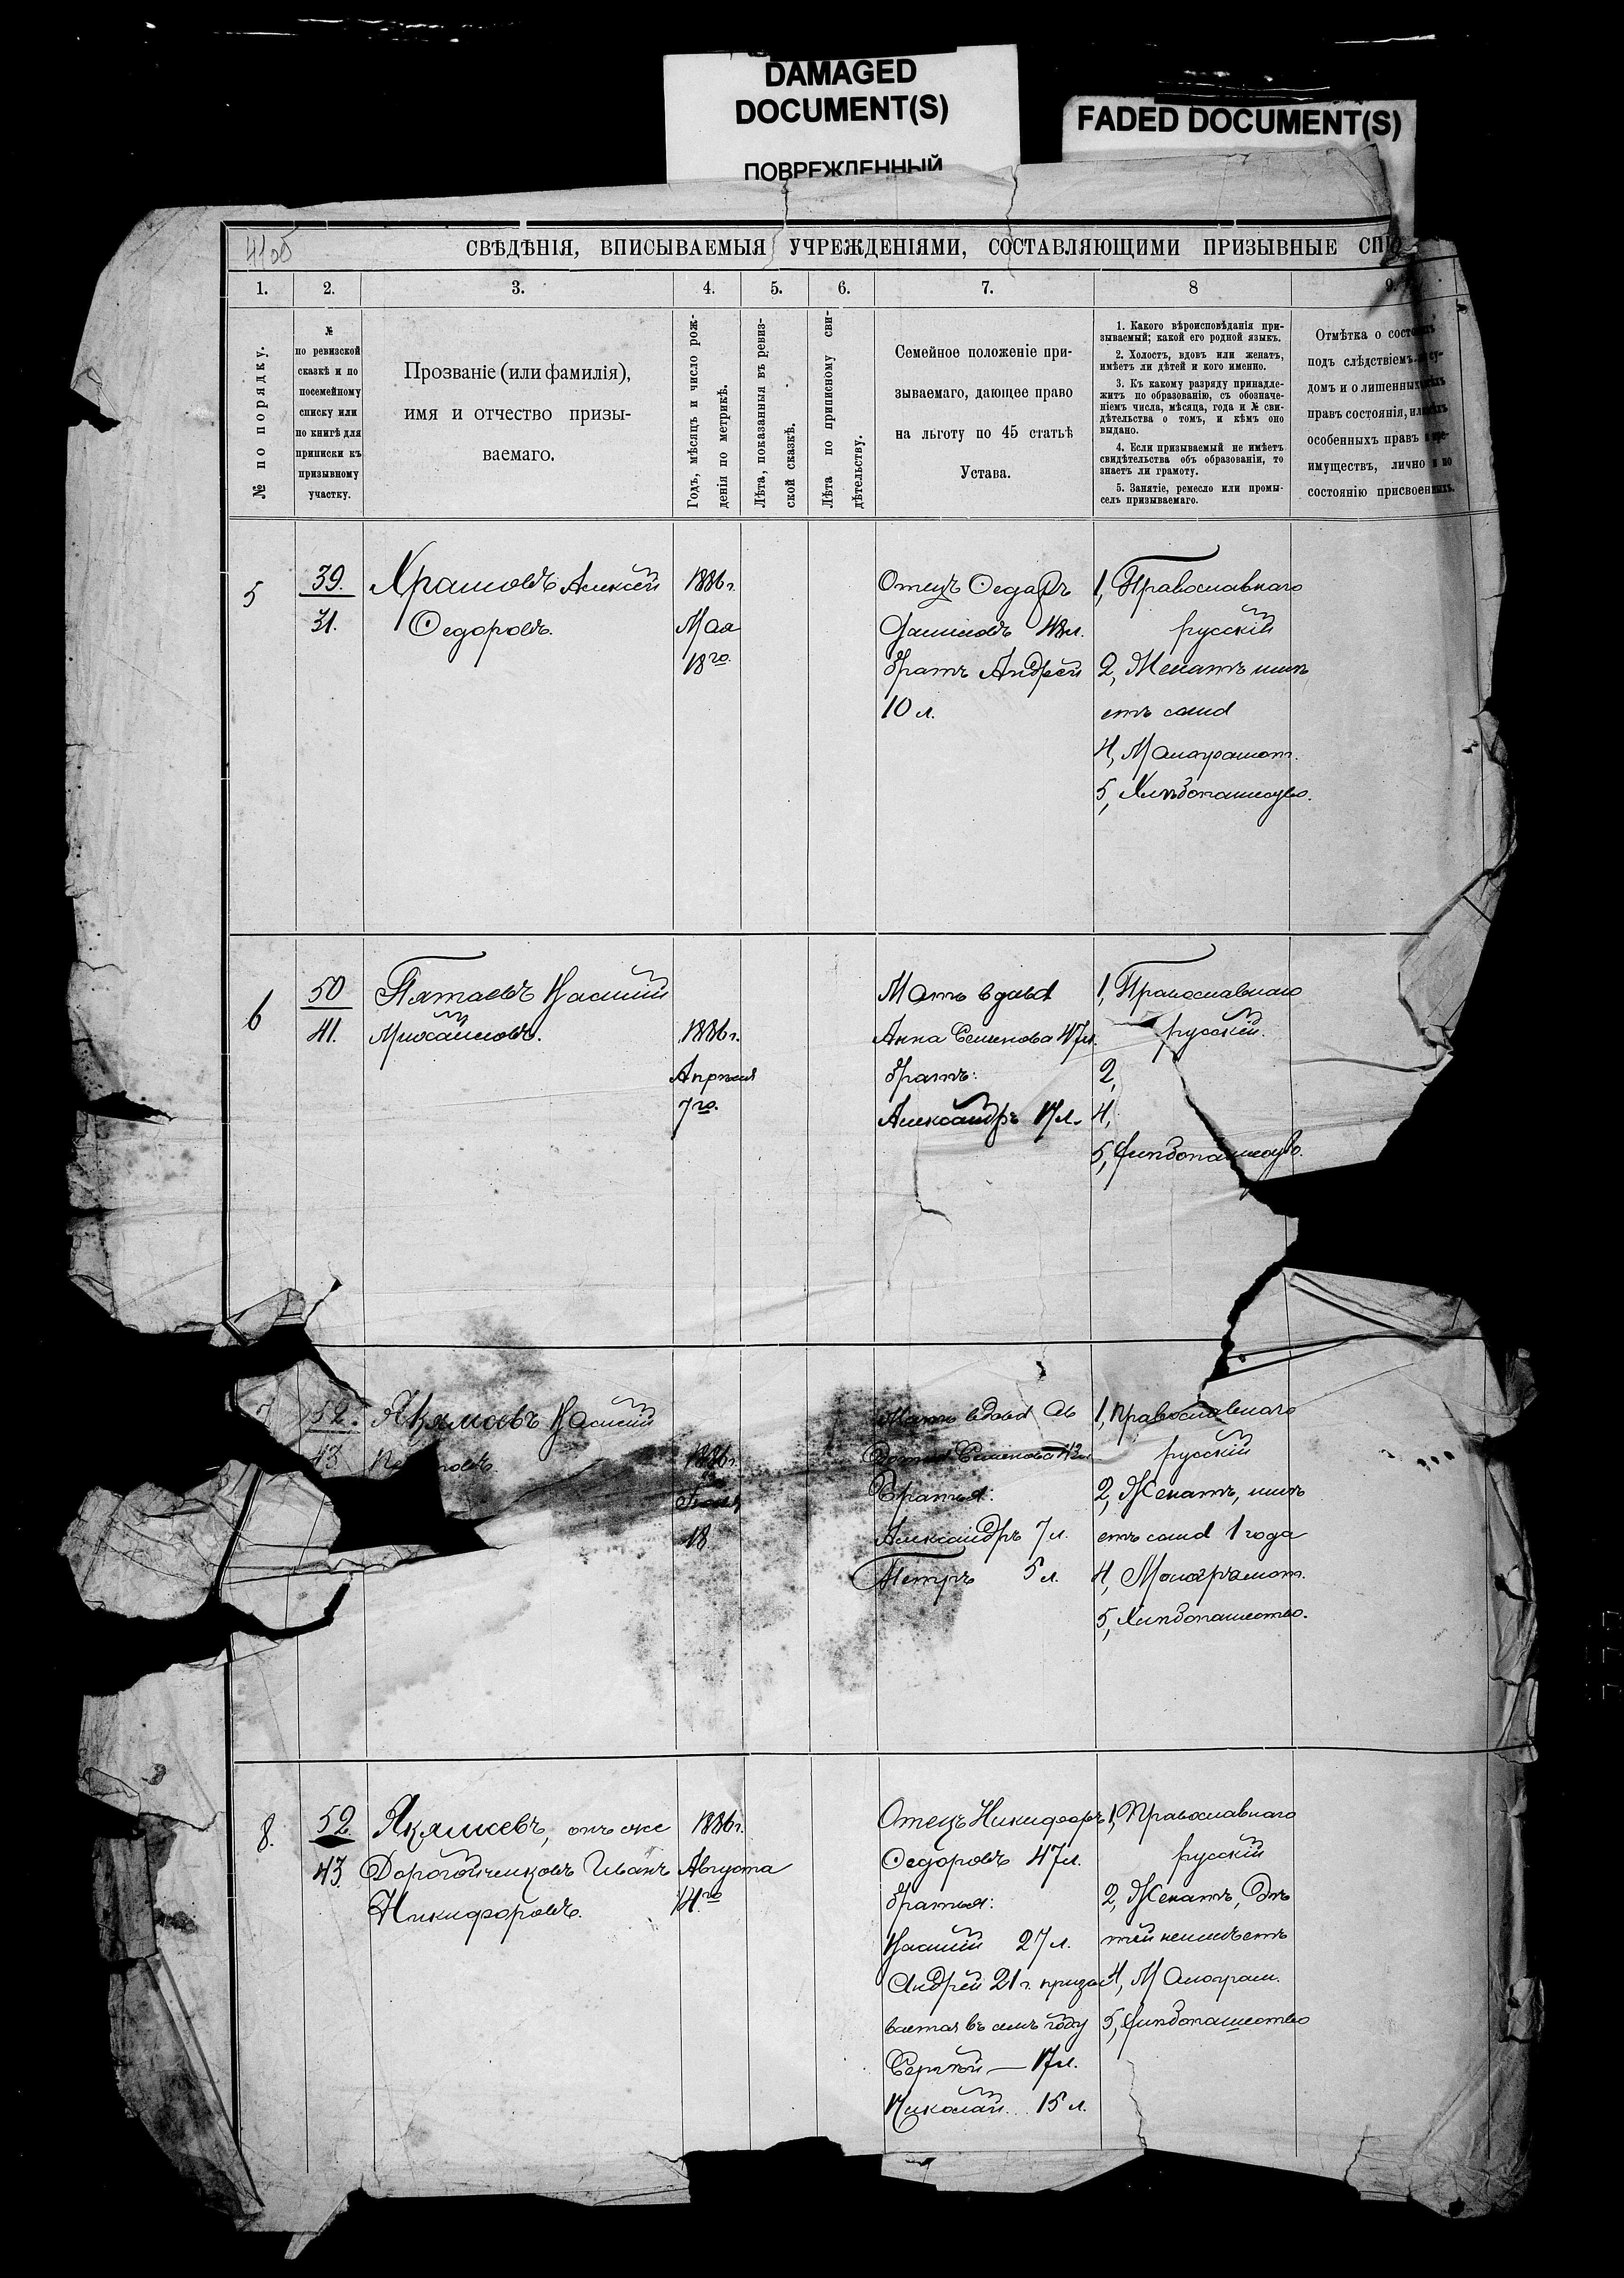 DAMAGED
DOCUMENT(S)
ПОВРЕЖДЕННЫЙ
FADED DOCUMENT(S)
4100
СВѢДѢНІЯ, ВПИСЫВАЕМЫЯ УЧРЕЖДЕНІЯМИ, СОСТАВЛЯЮЩИМИ ПРИЗЫВНЫЕ
1. 2. 3. 4. 5. 6. 7. 8 9.
№ по порядку.
№
по ревизской
сказкѣ и по
посемейному
списку или
по книгѣ для
приписки къ
призывному
участку.
Прозваніе (или фамилія),
имя и отчество призы-
ваемаго.
Годъ, мѣсяцъ и число рож-
денія по метрикѣ.
Лѣта, показанныя въ ревиз-
ской сказкѣ.
Лѣта по приписному сви-
дѣтельству.
Семейное положеніе при-
зываемаго, дающее право
на льготу по 45 статьѣ
Устава.
1. Какого вѣроисповѣданія при-
зываемый; какой его родной языкъ.
2. Холостъ, вдовъ или женатъ,
имѣетъ ли дѣтей и кого именно.
3. Къ какому разряду принадле-
житъ по образованію, съ обозначе-
ніемъ числа, мѣсяца, года и № сви-
дѣтельства о томъ, и кѣмъ оно
выдано.
4. Если призываемый не имѣетъ
свидѣтельства объ образованіи, то
знаетъ ли грамоту.
5. Занятіе, ремесло или промы-
селъ призываемаго.
Отмѣтка о
подъ слѣдствіемъ
домъ и о лишенныхъ
правъ состоянія,
особенныхъ правъ
имуществъ, лично
состоянію присвоенныхъ.
5
39.
31.
Храмовъ Алексѣй
Ѳедоровъ.
1886 г.
Мая
18го.
Отецъ Ѳедоръ
48 л.
братъ Андрей
10 л.
1, Православнаго
русскій
2, Женатъ имѣ
етъ сына
4, Малограмот.
5, Хлѣбопашество.
6
50
41.
Пятаевъ Василій
Михайловъ.
1886 г.
Апрѣля
7го.
Мать вдова
Анна Семенова 47 л.
братъ:
Александръ 17 л.
1, Православнаго
русскій.
2,
4,
5, Хлѣбопашество.
7
52.
43
Якямсевъ Василій
1886 г.
18
Мать вдова Ав
дотья Семенова 43 л.
Братья:
Александръ 7 л.
Петръ 5 л.
1, Православнаго
русскій
2, Женатъ, имѣ
етъ сына 1 года
4, Малограмот.
5, Хлѣбопашество.
8.
52
43.
Якямсевъ, онъ же
Дорогойченковъ Иванъ
Никифоровъ.
1886 г.
Августа
14го
Отецъ Никифоръ
Ѳедоровъ 47 л.
братья:
Василій 27 л.
Андрей 21 г. призы
вается въ семъ году
Сергѣй — 17 л.
Николай. 15 л.
1, Православнаго
русскій
2, Женатъ, дѣ
тей неимѣетъ
4, Малограм.
5, Хлѣбопашество